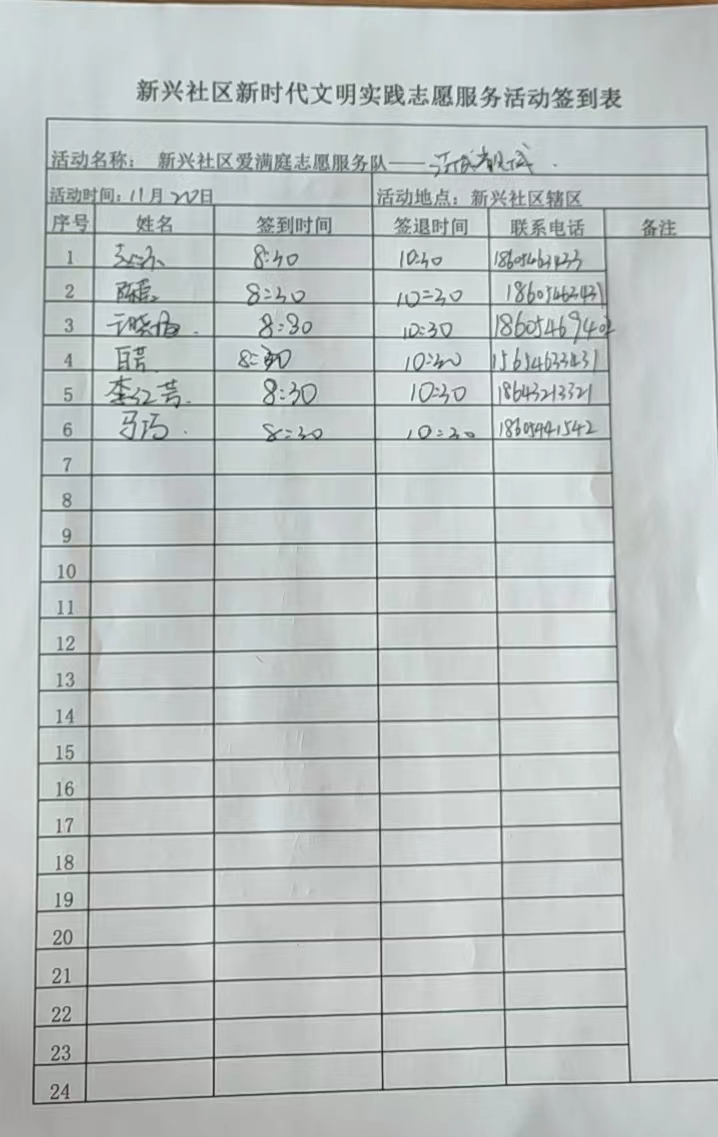 新兴社区新时代文明实践志愿服务活动签到表
活动名称： 新兴社区爱满庭志愿服务队——
活动时间：11月20日 活动地点：新兴社区辖区
序号 姓名 签到时间 签退时间 联系电话 备注
1 8:30 10:30 18605463433
2 8:30 10:30 18605463431
3 8:30 10:30
4 8:30 10:30 15654633431
5 李红芸 8:30 10:30 18643213321
6 马巧 8:30 10:30 18605441542
7
8
9
10
11
12
13
14
15
16
17
18
19
20
21
22
23
24